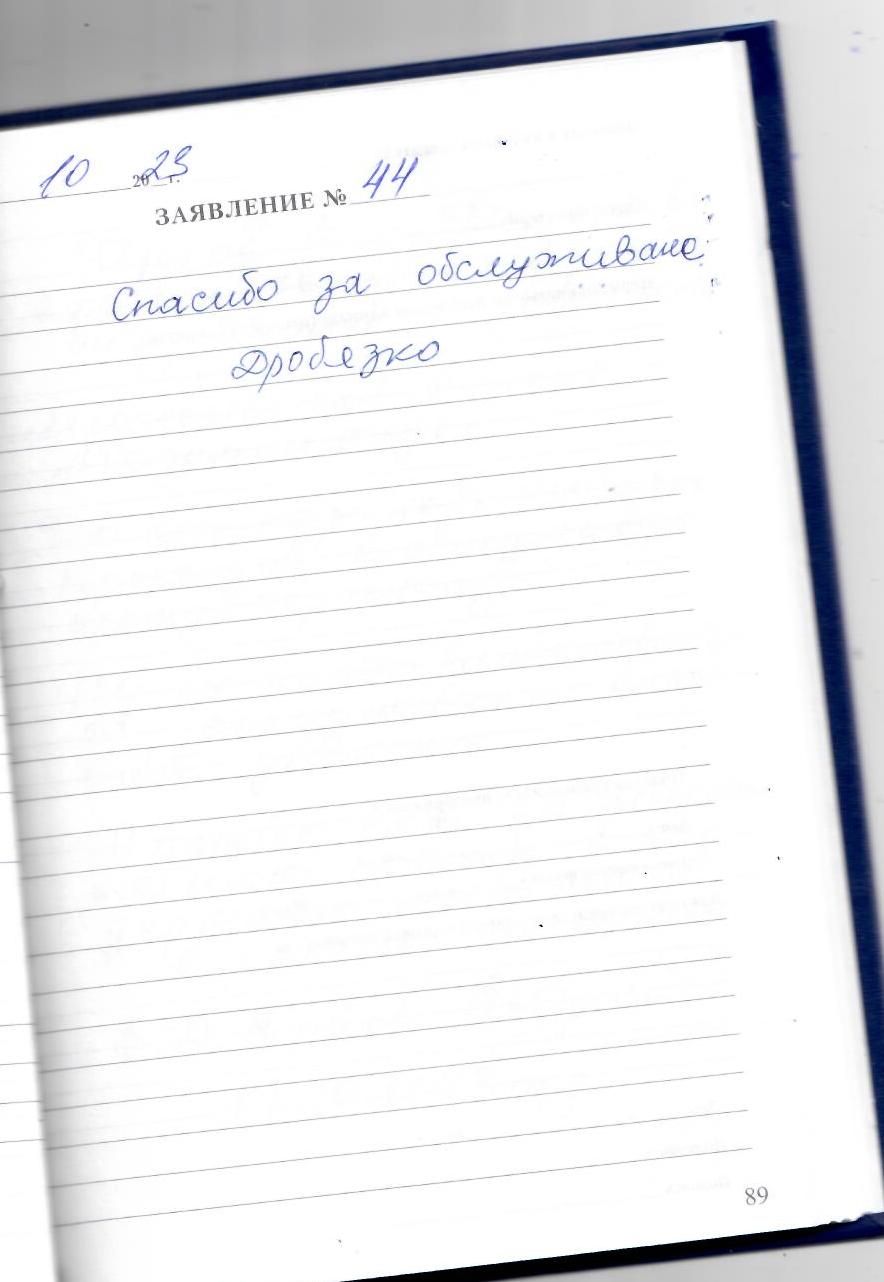 10 2023 г.
ЗАЯВЛЕНИЕ № 44
Спасибо за обслуживане
Дробязко
89